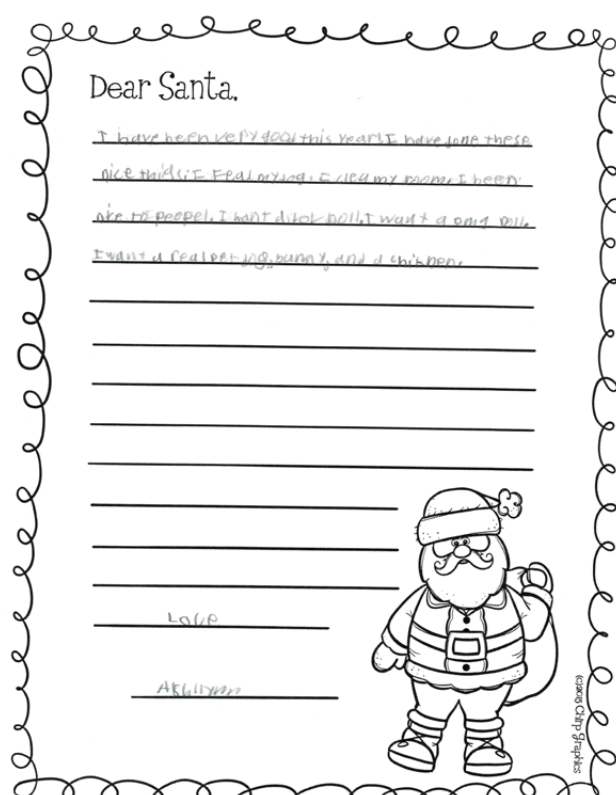 Dear Santa,
I have been very good this year. I have done these
nice thids: I Fead my dog. I clea my room. I been
nice to peopel. I want a doll. I want a omg doll.
I want a real pet dog, bunny, and a chihpen.
Love
(c)2015 Chirp Graphics